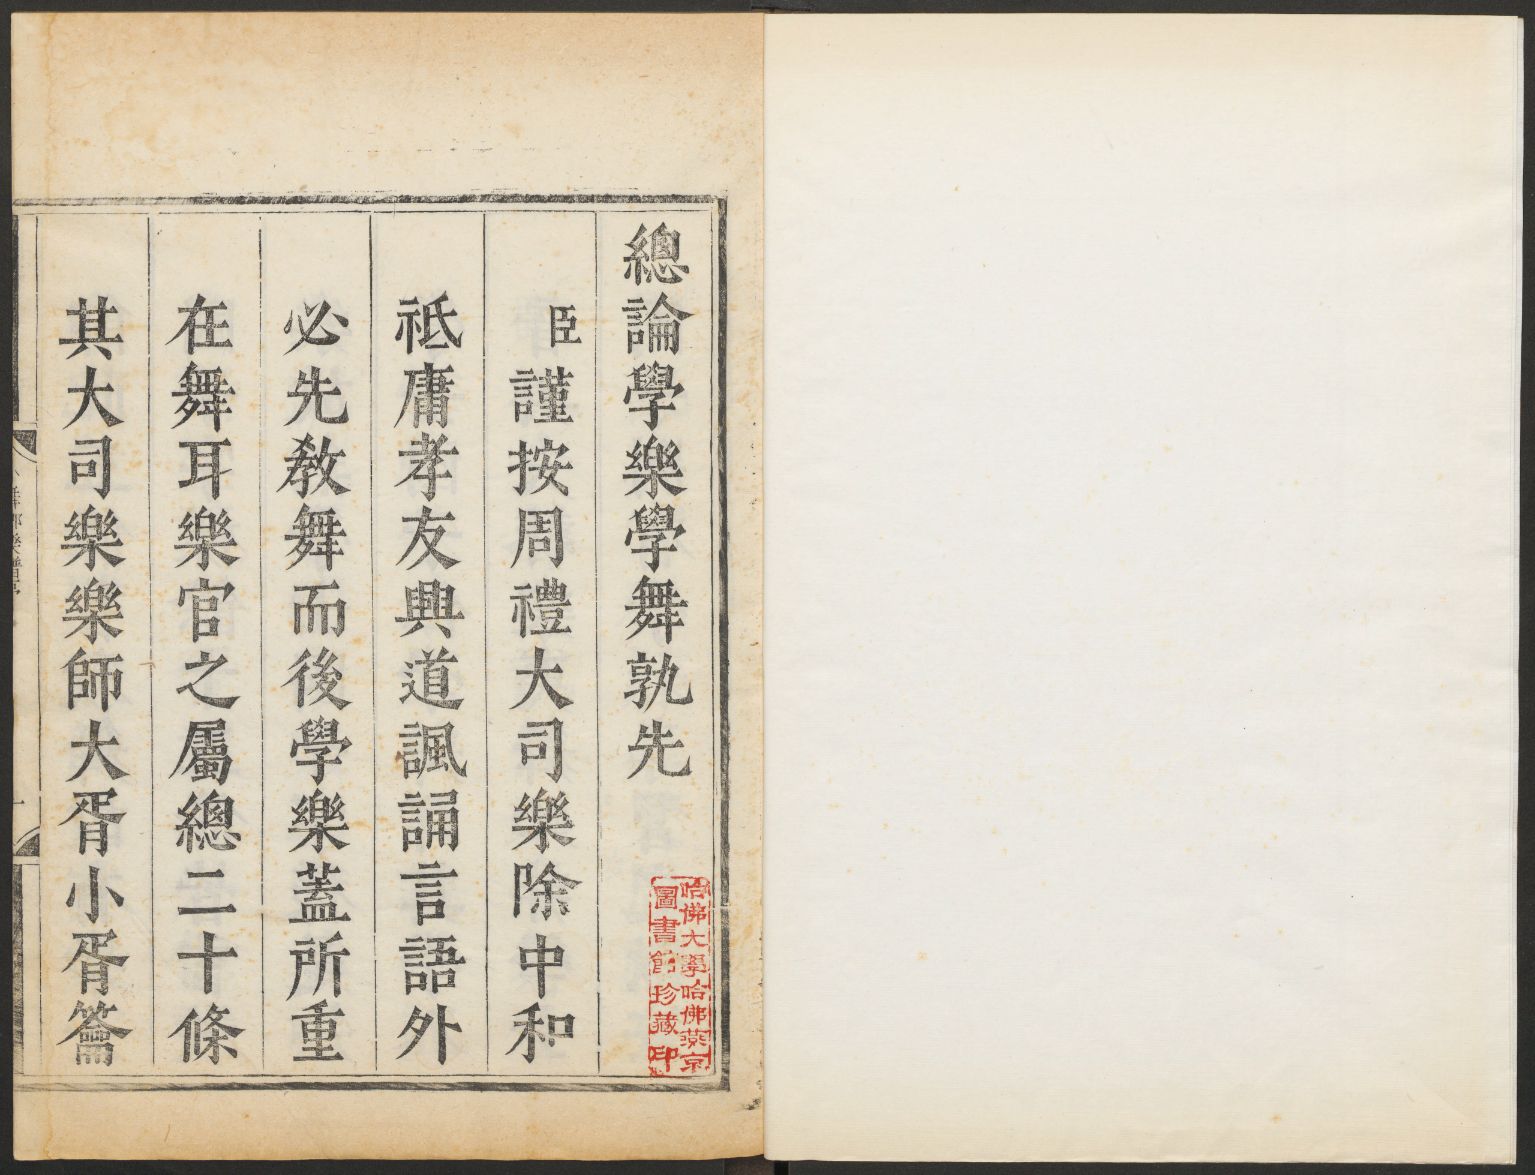 總論學樂學舞孰先
臣謹按周禮大司樂除中和
祗庸孝友興道諷誦言語外
必先教舞而後學樂蓋所重
在舞耳樂官之屬總二十條
其大司樂樂師大胥小胥籥
哈佛大學哈佛燕京
圖書館珍藏印